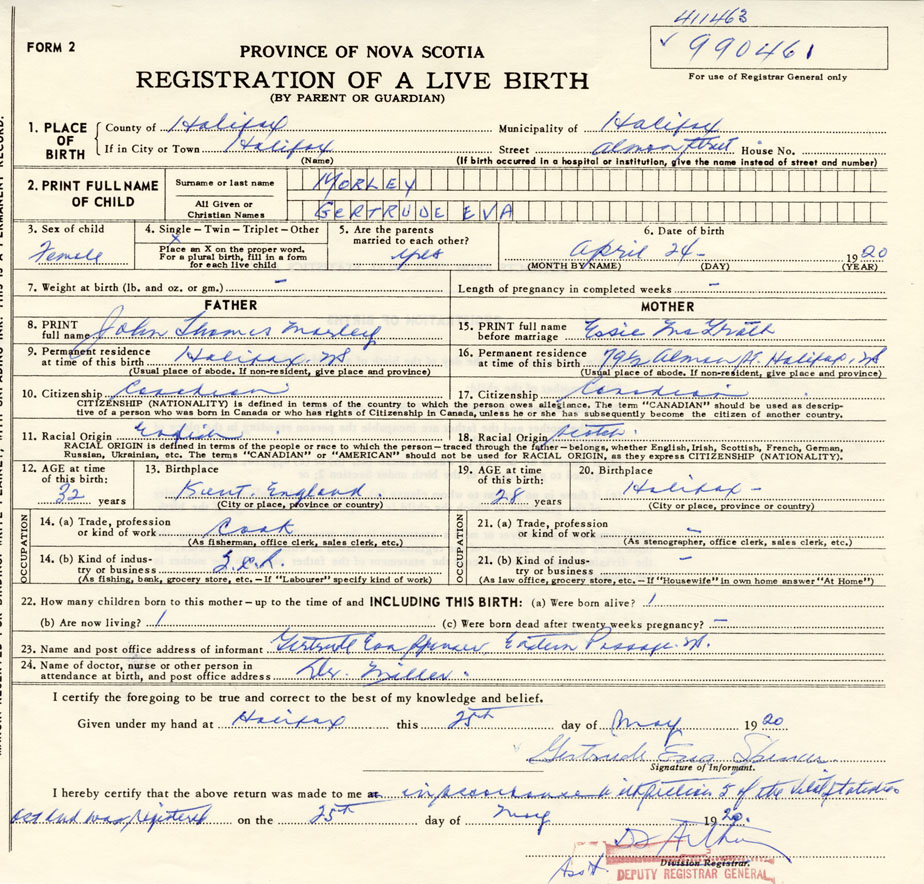 411463
✓ 990461
FORM 2
PROVINCE OF NOVA SCOTIA
For use of Registrar General only
REGISTRATION OF A LIVE BIRTH
(BY PARENT OR GUARDIAN)
1. PLACE OF BIRTH
County of Halifax Municipality of Halifax
If in City or Town Halifax Street Almon Street House No.
(Name) (If birth occurred in a hospital or institution, give the name instead of street and number)
2. PRINT FULL NAME OF CHILD
Surname or last name MORLEY
All Given or Christian Names GERTRUDE EVA
3. Sex of child Female
4. Single – Twin – Triplet – Other
X
Place an X on the proper word. For a plural birth, fill in a form for each live child
5. Are the parents married to each other? yes
6. Date of birth
April 24 – 1920
(MONTH BY NAME) (DAY) (YEAR)
7. Weight at birth (lb. and oz. or gm.) – Length of pregnancy in completed weeks –
FATHER MOTHER
8. PRINT full name John Thomas Morley
15. PRINT full name before marriage Essie McGrath
9. Permanent residence at time of this birth Halifax, NS
(Usual place of abode. If non-resident, give place and province)
16. Permanent residence at time of this birth 79½ Almon St. Halifax, NS
(Usual place of abode. If non-resident, give place and province)
10. Citizenship Canadian 17. Citizenship Canadian
CITIZENSHIP (NATIONALITY) is defined in terms of the country to which the person owes allegiance. The term "CANADIAN" should be used as descrip-
tive of a person who was born in Canada or who has rights of Citizenship in Canada, unless he or she has subsequently become the citizen of another country.
11. Racial Origin English 18. Racial Origin Scotch
RACIAL ORIGIN is defined in terms of the people or race to which the person – traced through the father – belongs, whether English, Irish, Scottish, French, German,
Russian, Ukrainian, etc. The terms "CANADIAN" or "AMERICAN" should not be used for RACIAL ORIGIN, as they express CITIZENSHIP (NATIONALITY).
12. AGE at time of this birth: 32 years
13. Birthplace Kent, England.
(City or place, province or country)
19. AGE at time of this birth: 28 years
20. Birthplace Halifax –
(City or place, province or country)
OCCUPATION
14. (a) Trade, profession or kind of work Cook
(As fisherman, office clerk, sales clerk, etc.)
14. (b) Kind of indus-try or business
(As fishing, bank, grocery store, etc. – If "Labourer" specify kind of work)
OCCUPATION
21. (a) Trade, profession or kind of work –
(As stenographer, office clerk, sales clerk, etc.)
21. (b) Kind of indus-try or business –
(As law office, grocery store, etc. – If "Housewife" in own home answer "At Home")
22. How many children born to this mother – up to the time of and INCLUDING THIS BIRTH: (a) Were born alive? 1
(b) Are now living? 1 (c) Were born dead after twenty weeks pregnancy? –
23. Name and post office address of informant Gertrude Eva Spencer Eastern Passage. NS.
24. Name of doctor, nurse or other person in attendance at birth, and post office address Dr. Miller.
I certify the foregoing to be true and correct to the best of my knowledge and belief.
Given under my hand at Halifax this 25th day of May 1920
Gertrude Eva Spencer
Signature of Informant.
I hereby certify that the above return was made to me at in accordance with section 5 of the Vital Statistics
Act and was registered on the 25th day of May 1920.
Division Registrar.
Ass't DEPUTY REGISTRAR GENERAL